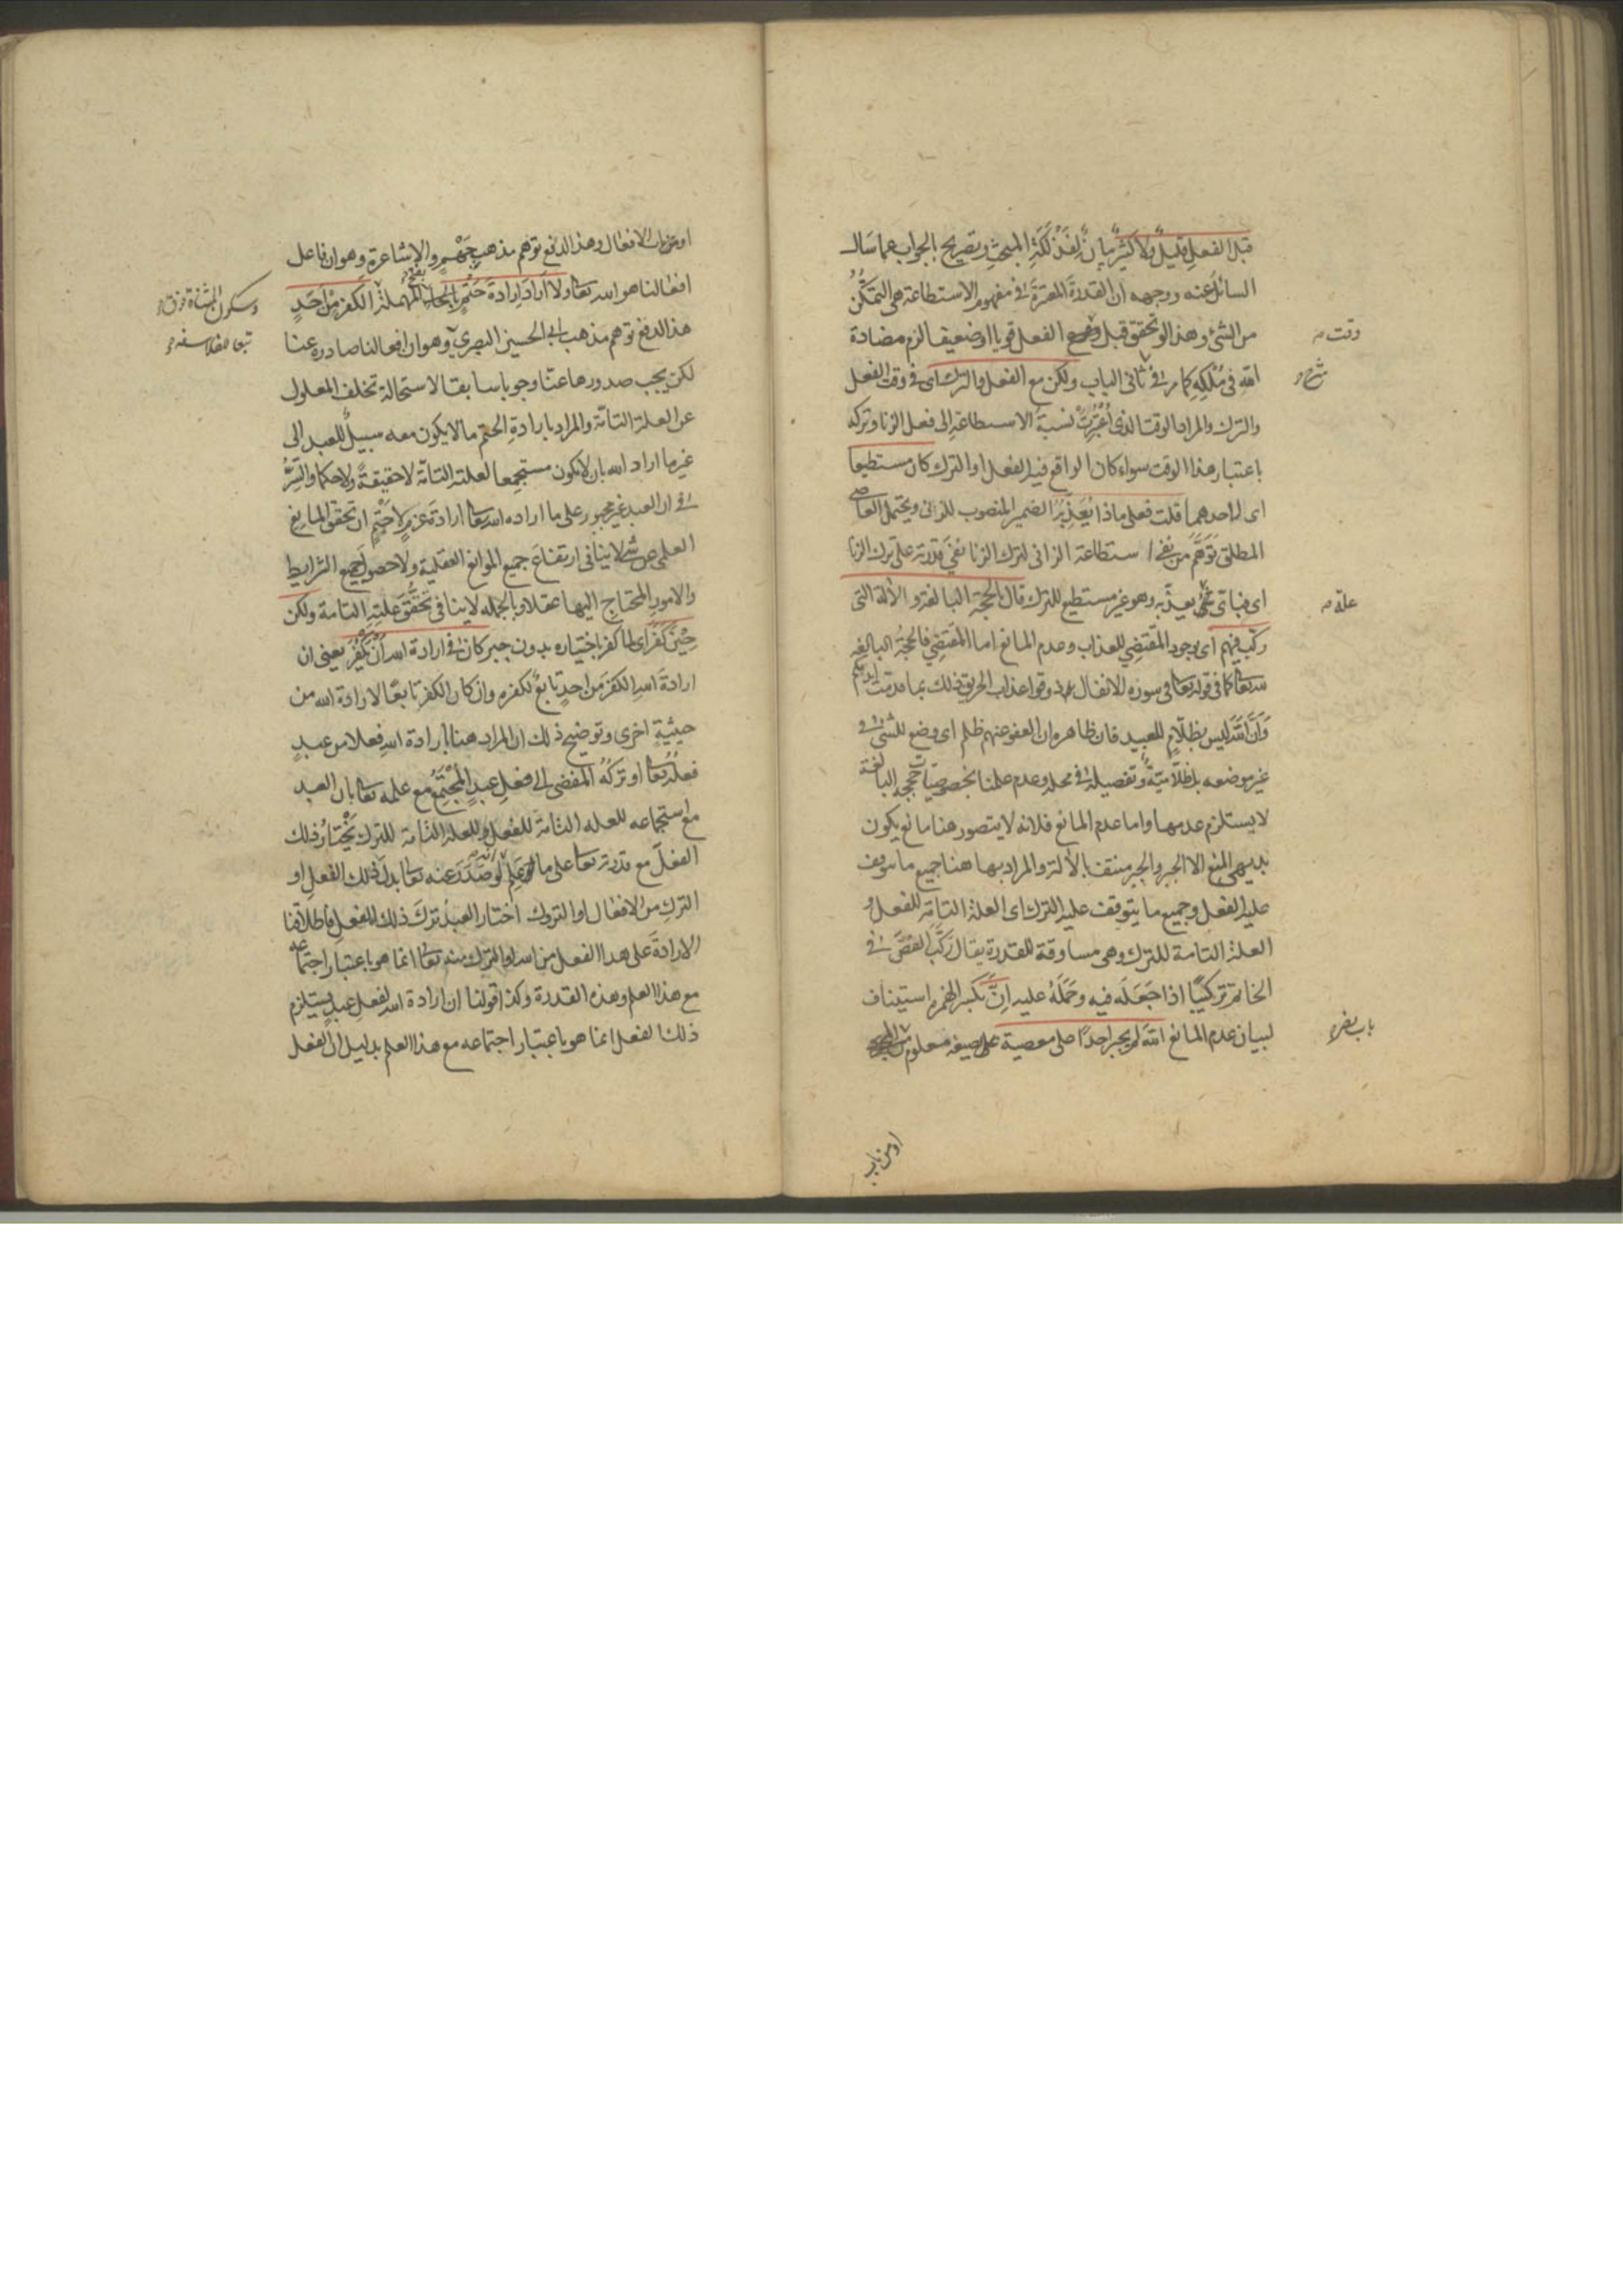 قبل الفعل قليل ولا كثير بيان لفذلكة المبحث وتصريح بالجواب عما سال
السائل عنه ووجهه ان القدرة المعتبرة في مفهوم الاستطاعة هي التمكن
من الشئ وهذا لو تحقق قبل الفعل قويا او ضعيفا لزم مضادة
وقت
الله في ملكه كما مر في ثاني الباب ولكن مع الفعل والترك اى في وقت الفعل
والترك والمراد الوقت الذى اعتبرت نسبة الاستطاعة الى فعل الزنا وتركه
باعتبار هذا الوقت سواء كان الواقع فيه الفعل او الترك كان مستطيعا
اى لاحدهما قلت فعلى ماذا يعذبه الضمير المنصوب للزانى ويحتمل العاصى
المطلق توهم من نفى استطاعة الزانى لترك الزنا نفى قدرته على ترك الزنا
اى فباى يعذبه وهو غير مستطيع للترك قال بالحجة البالغة والآلة التى
علة
ركب فيهم اى بوجود المقتضي للعذاب وعدم المانع اما المقتضي فالحجة البالغه
لله تعالى كما في قوله تعالى في سورة الانفال وذوقوا عذاب الحريق ذلك بما قدمت ايديكم
وان الله ليس بظلام للعبيد فان ظاهره ان العفو عنهم ظلم اى وضع للشئ في
غير موضعه بل ظلامية وتفصيله في محله وعدم علمنا بخصوصيات حججه البالغة
لا يستلزم عدمها واما عدم المانع فلانه لا يتصور هنا مانع يكون
بديهى المنع الا الجبر والجبر منتف بالآلة والمراد بها هنا جميع ما يتوقف
عليه الفعل وجميع ما يتوقف عليه الترك اى العلة التامة للفعل و
العلة التامة للترك وهى مساوقة للقدرة يقال ركب الفص في
الخاتم تركيبا اذا جعله فيه وحمله عليه ان بكسر الهمزه استيناف
لبيان عدم المانع الله لم يجبر احدا على معصية على صيغه معلوم
باب نصر
او من باب
او من باب الافعال وهذا لدفع توهم مذهب جهم والاشاعرة وهو ان فاعل
افعالنا هو الله تعالى ولا اراد ارادة حتم بالحاء المهملة الكفر من احد
بفتح
وسكون المثناة فوق
هذا لدفع توهم مذهب ابى الحسين البصرى وهو ان افعالنا صادره عنا
تبعا للفلاسفه
لكن يجب صدورها عنا وجوبا سابقا لاستحالة تخلف المعلول
عن العلة التامة والمراد بارادة الحتم ما لا يكون معه سبيل للعبد الى
غير ما اراد الله بان لا يكون مستجمعا لعلته التامة لا حقيقة ولا حكما والسر
في ان العبد غير مجبور على ما اراده الله تعالى ارادة عزم لا حتم ان تحقق المانع
العلمى عن شئ لا ينافى ارتفاع جميع الموانع العقلية ولا حصول جميع الشرايط
والامور المحتاج اليها عقلا وبالجمله لا ينافى تحقق علته التامة ولكن
حين كفر اى لما كفر باختياره بدون جبر كان في ارادة الله ان يكفر يعنى ان
ارادة الله الكفر من احد تابع لكفره وان كان الكفر تابعا لارادة الله من
حيثية اخرى وتوضيح ذلك ان المراد هنا بارادة الله فعلا من عبد
فعله تعالى او تركه المفضى الى فعل عبد المجتمع مع علمه تعالى بان العبد
مع استجماعه للعله التامة للفعل وللعلة التامة للترك يختار ذلك
الفعل مع قدرته تعالى على ما علم انه لو صدر عنه تعالى بدل ذلك الفعل او
الترك من الافعال او التروك اختار العبد ترك ذلك الفعل فاطلاقنا
الارادة على هذا الفعل من الله او الترك منه تعالى انما هو باعتبار اجتماعه
مع هذا العلم وهذه القدرة وكذا قولنا ان ارادة الله لفعل عبد يستلزم
ذلك الفعل انما هو باعتبار اجتماعه مع هذا العلم بدليل ان الفعل